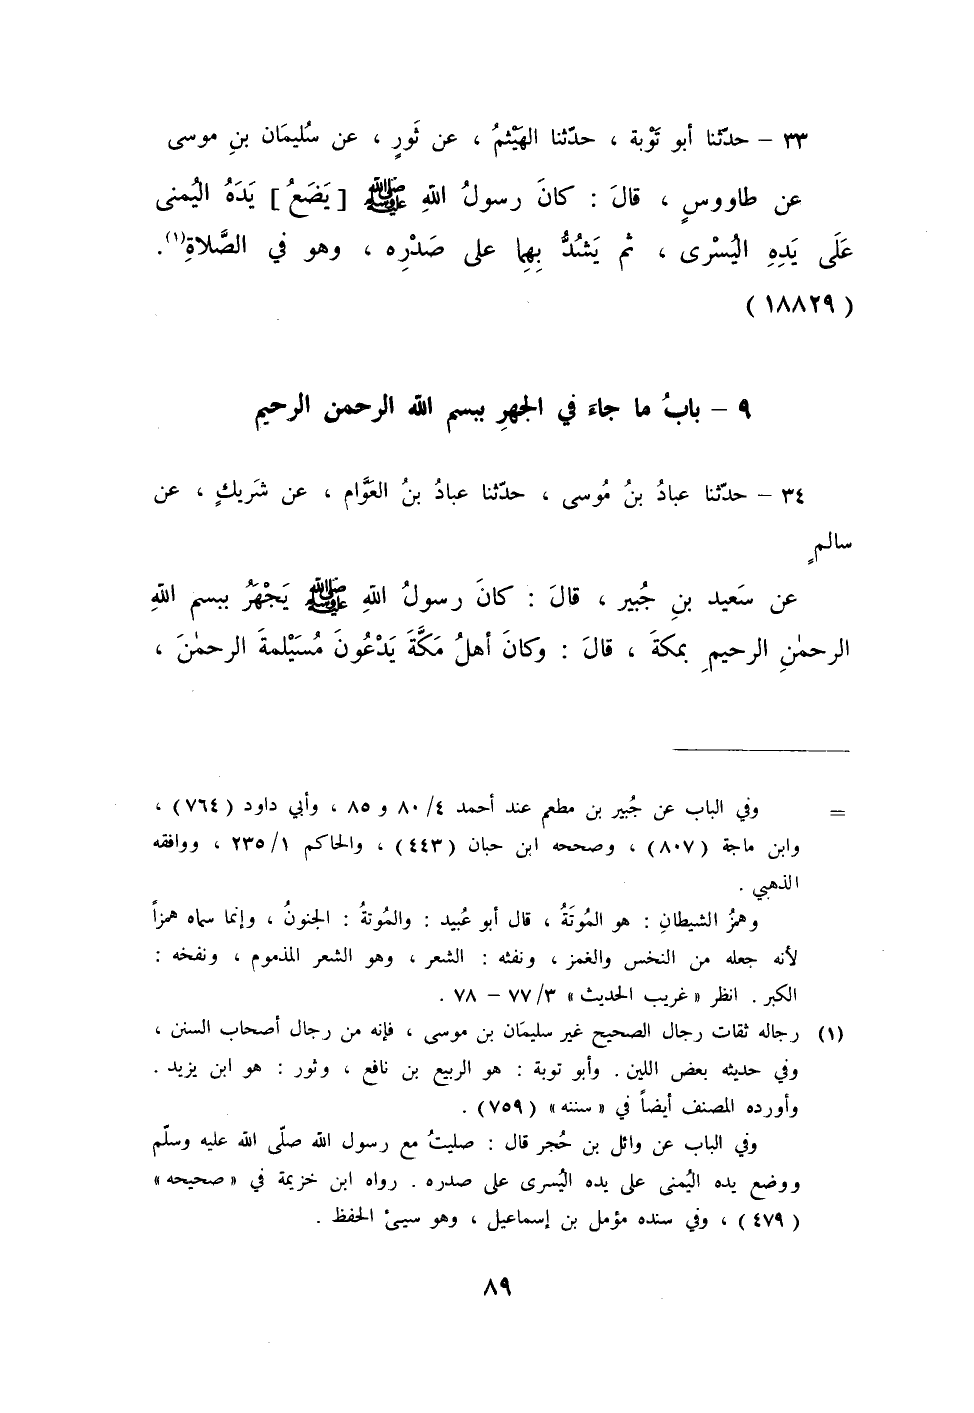 ٣٣ – حدّثنا أبو تَوْبة ، حدّثنا الهَيْثمُ ، عن ثَورٍ ، عن سُليمَان بنِ موسى
عن طاووسٍ ، قالَ : كانَ رسولُ اللهِ ﷺ [ يَضَعُ ] يَدَهُ اليُمنى
عَلَى يَدِهِ اليُسْرى ، ثم يَشدُّ بِهِما على صَدْرِه ، وهو في الصَّلاةِ(١).
( ١٨٨٢٩ )
٩ – بابُ ما جاءَ في الجهرِ ببسم الله الرحمن الرحيم
٣٤ – حدّثنا عبادُ بنُ مُوسى ، حدّثنا عبادُ بنُ العَوَّام ، عن شَريكٍ ، عن
سالمٍ
عن سَعيد بنِ جُبير ، قالَ : كانَ رسولُ اللهِ ﷺ يَجْهَرُ ببسم اللهِ
الرحمٰنِ الرحيمِ بمكةَ ، قالَ : وكانَ أهلُ مَكَّةَ يَدْعُونَ مُسَيْلمةَ الرحمٰنَ ،
= وفي الباب عن جُبير بن مطعم عند أحمد ٤/ ٨٠ و ٨٥ ، وأبي داود ( ٧٦٤ ) ،
وابن ماجة ( ٨٠٧ ) ، وصححه ابن حبان ( ٤٤٣ ) ، والحاكم ١/ ٢٣٥ ، ووافقه
الذهبي .
وهمزُ الشيطانِ : هو المُوتَةُ ، قال أبو عُبيد : والمُوتةُ : الجنونُ ، وإنما سماه همزاً
لأنه جعله من النخس والغمز ، ونفثه : الشعر ، وهو الشعر المذموم ، ونفخه :
الكبر . انظر « غريب الحديث » ٣/ ٧٧ – ٧٨ .
(١) رجاله ثقات رجال الصحيح غير سليمان بن موسى ، فإنه من رجال أصحاب السنن ،
وفي حديثه بعض اللين . وأبو توبة : هو الربيع بن نافع ، وثور : هو ابن يزيد .
وأورده المصنف أيضاً في « سننه » ( ٧٥٩ ) .
وفي الباب عن وائل بن حُجر قال : صليتُ مع رسول الله صلّى الله عليه وسلّم
ووضع يده اليُمنى على يده اليُسرى على صدره . رواه ابن خزيمة في « صحيحه »
( ٤٧٩ ) ، وفي سنده مؤمل بن إسماعيل ، وهو سيئ الحفظ .
٨٩